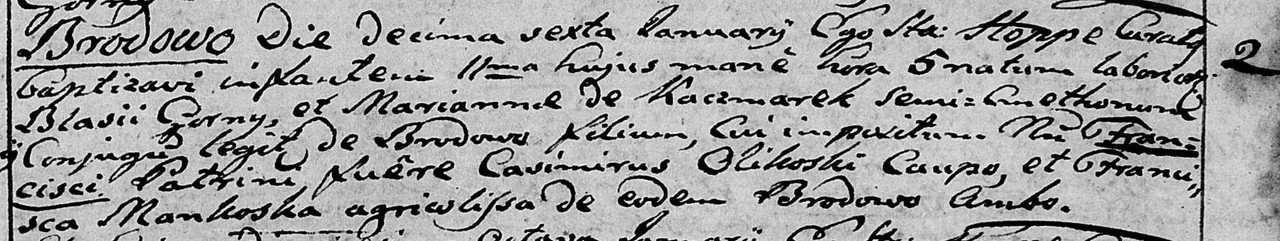 Brodowo Die decima sexta Januarij Ego Sta: Hoppe Curatq
2
baptizavi infantem 11ma hujus manè hora 5 natum laborios:
Blasii Gorny, et Mariannæ de Kaczmarek Semi=Cmethonum
Conjugũ legit. de Brodowo filium, Cui impositum Nũ Fran=
cisci Patrini fuêre Casimirus Olikoski Caupo, et Franci„
sca Mankoska agricolissa de eodem Brodowo Ambo.